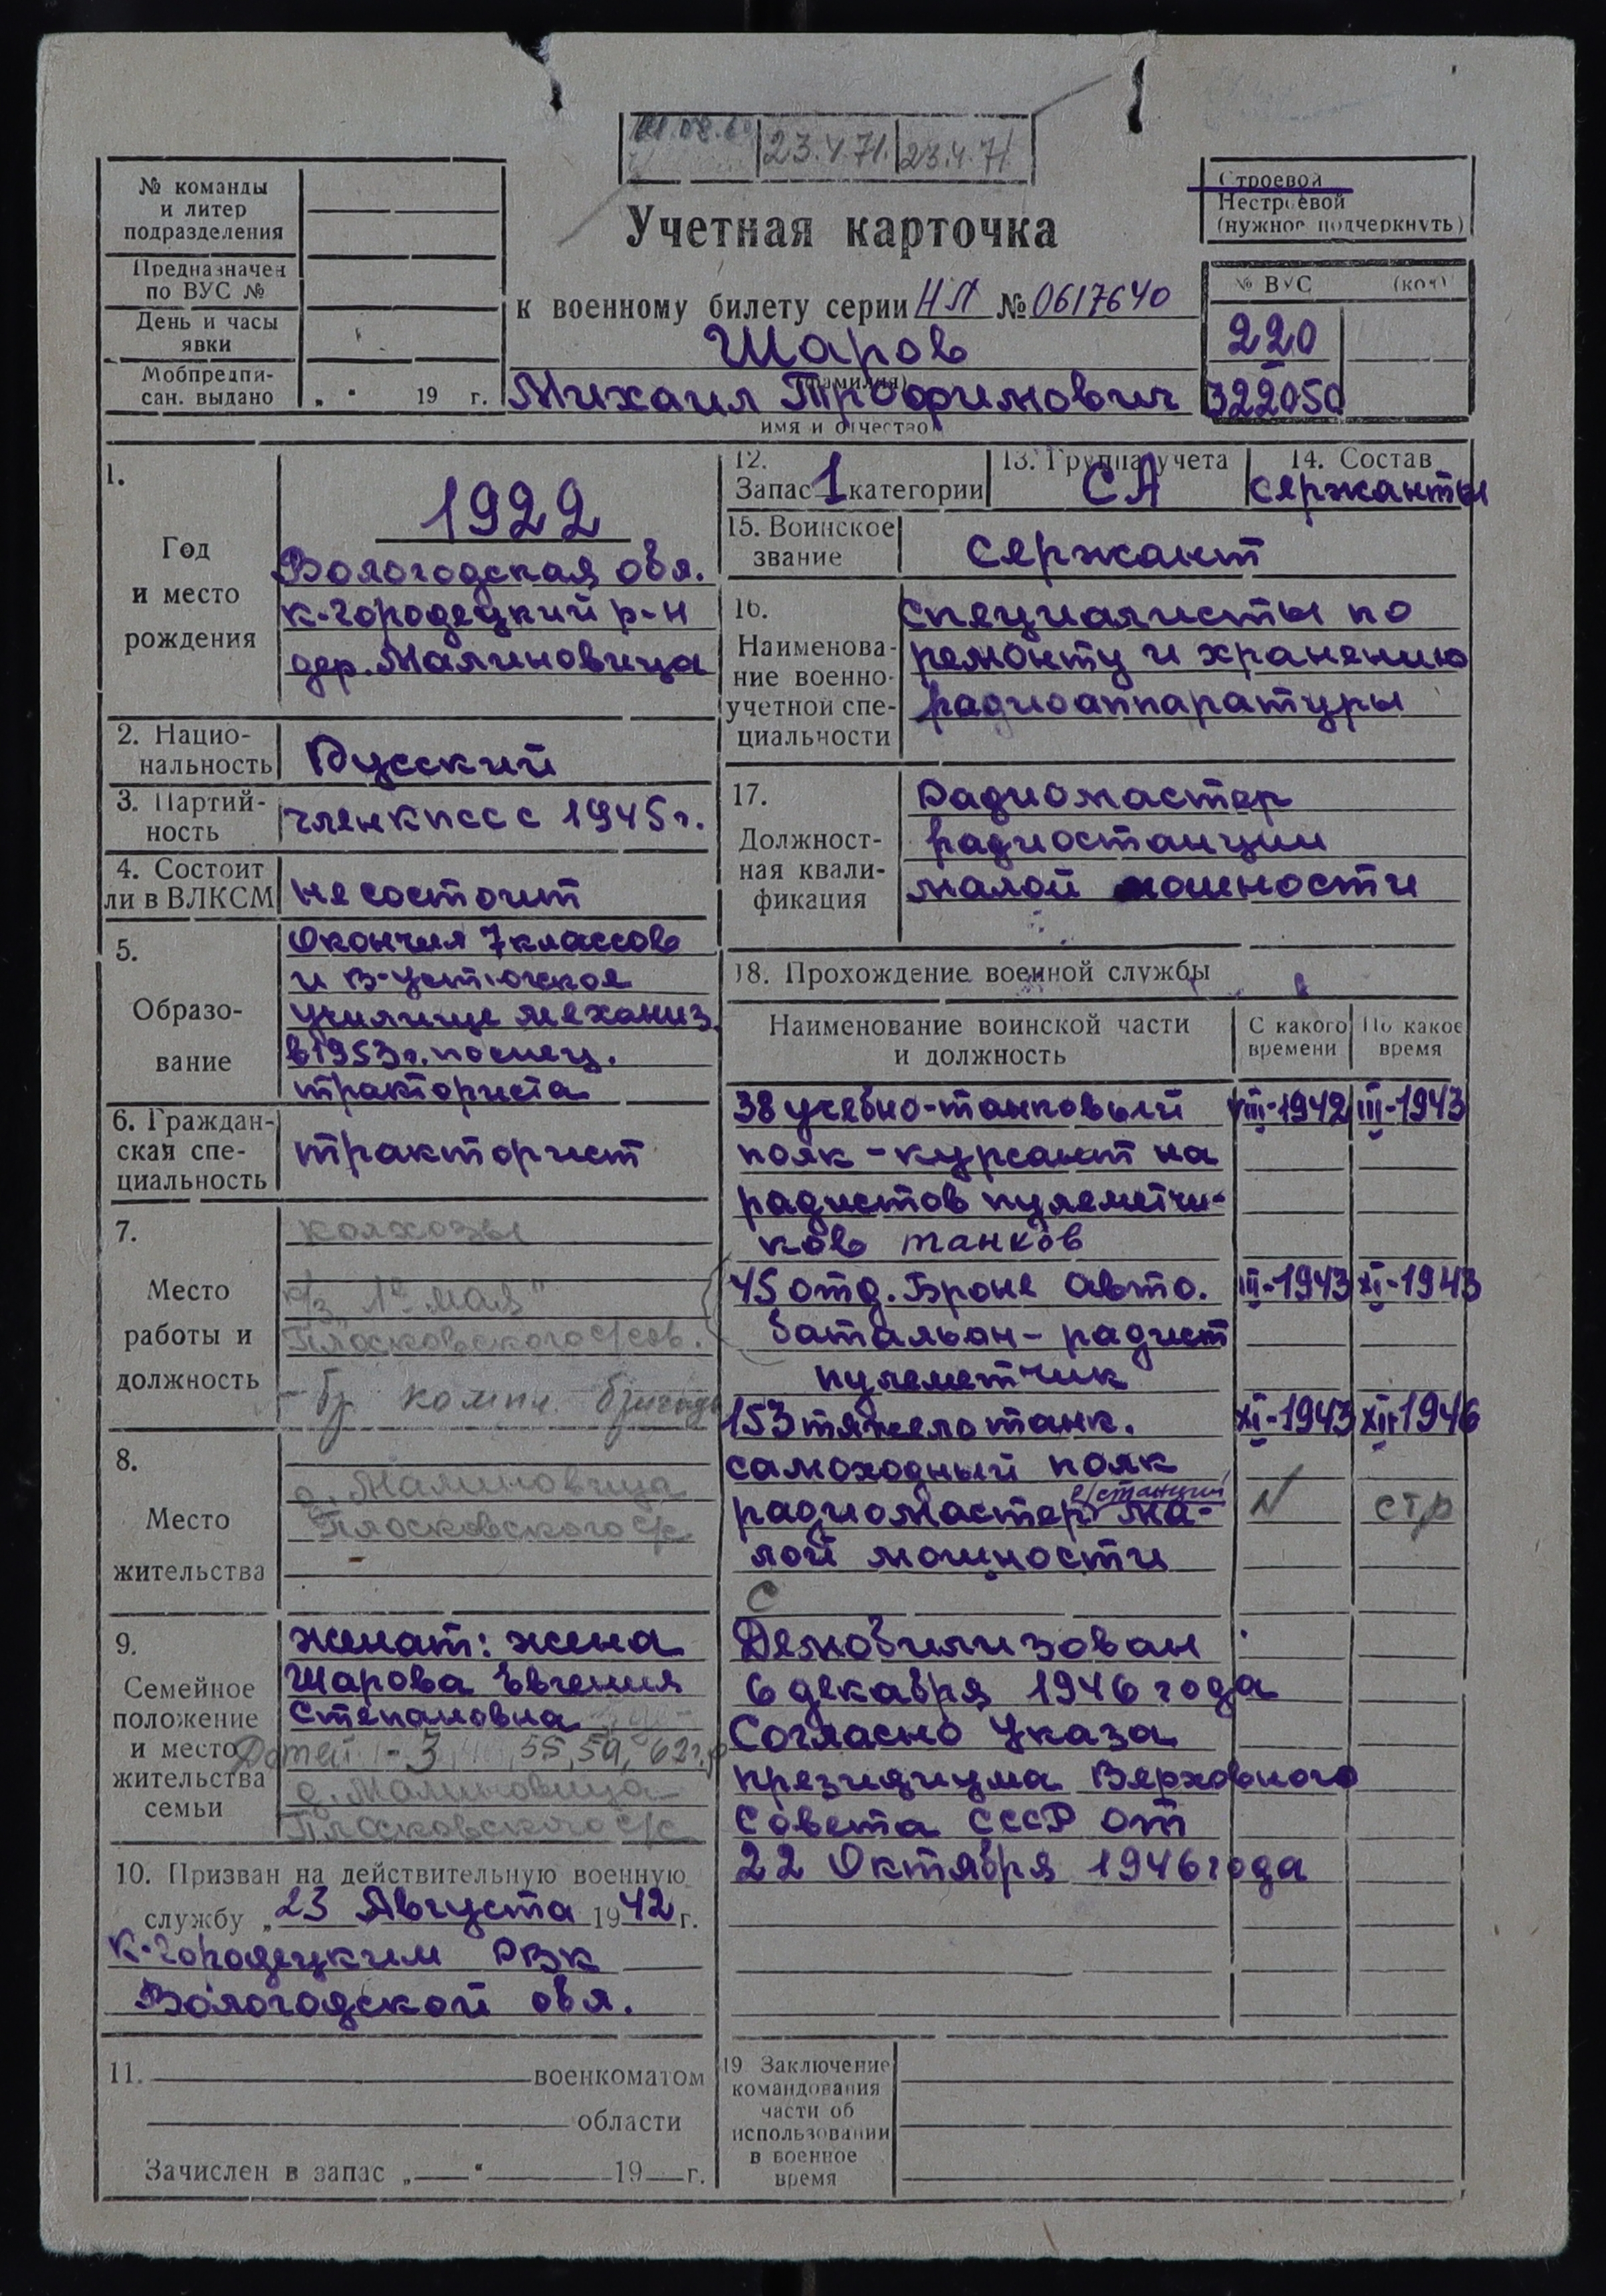 23.4.71. 23.4.71
№ команды
и литер
подразделения
Предназначен
по ВУС №
День и часы
явки
Мобпредпи-
сан. выдано „ " 19 г.
Учетная карточка
к военному билету серии НЛ № 0617640
Шаров
(фамилия)
Михаил Трофимович
имя и отчество
Строевой
Нестроевой
(нужное подчеркнуть)
№ ВУС (код)
220
322050
1.
Год
и место
рождения
1922
Вологодская обл.
К-Городецкий р-н
дер. Малиновица
2. Нацио-
нальность
Русский
3. Партий-
ность
член КПСС с 1945 г.
4. Состоит
ли в ВЛКСМ
не состоит
5.
Образо-
вание
Окончил 7 классов
и В-Устюгское
училище механиз.
в 1953 г. по спец.
тракториста
6. Граждан-
ская спе-
циальность
тракторист
7.
Место
работы и
должность
колхозы
к/з "1е мая"
Плосковского с/сов.
- бр компл. бригады
8.
Место
жительства
д. Малиновица
Плосковского с/с
9.
Семейное
положение
и место
жительства
семьи
женат: жена
Шарова Евгения
Степановна
Детей - 3, 55, 59, 62 г.р
д. Малиновица
Плосковского с/с
10. Призван на действительную военную
службу „ 23 Августа 1942 г.
К-Городецким РВК
Вологодской обл.
11. военкоматом
области
Зачислен в запас „ " 19 г.
12.
Запас 1 категории
13. Группа учета
СА
14. Состав
сержанты
15. Воинское
звание
сержант
16.
Наименова-
ние военно-
учетной спе-
циальности
Специалисты по
ремонту и хранению
радиоаппаратуры
17.
Должност-
ная квали-
фикация
Радиомастер
радиостанции
малой мощности
18. Прохождение военной службы
Наименование воинской части
и должность
С какого
времени
По какое
время
38 учебно-танковый VIII-1942 III-1943
полк - курсант на
радистов пулеметчи-
ков танков
45 отд. Броне Авто. III-1943 XI-1943
батальон - радист
пулеметчик
153 тяжело танк. XI-1943 XII-1946
самоходный полк
р/станции
радиомастер ма- N стр
лой мощности
С
Демобилизован
6 декабря 1946 года
Согласно Указа
президиума Верховного
Совета СССР от
22 Октября 1946 года
19 Заключение
командования
части об
использовании
в военное
время